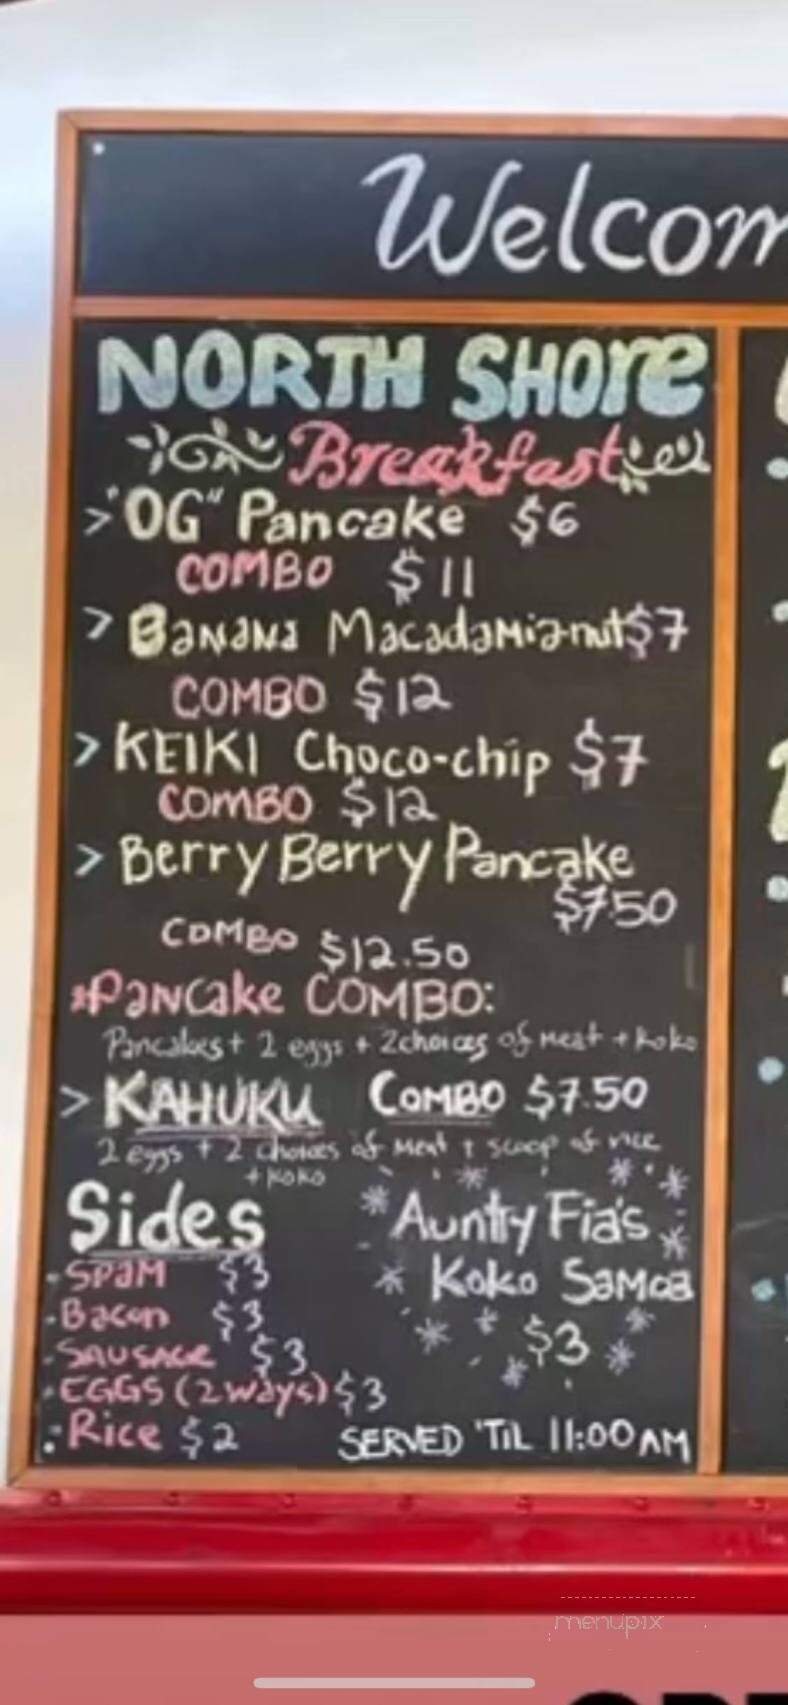 Welcom
NORTH SHore
Breakfast
> "OG" Pancake $6
COMBO $11
> Banana Macadamia-nut $7
COMBO $12
> KEIKI Choco-chip $7
COMBO $12
> Berry Berry Pancake
$7.50
COMBO $12.50
*Pancake COMBO:
Pancakes + 2 eggs + 2 choices of meat + koko
> KAHUKU COMBO $7.50
2 eggs + 2 choices of meat + scoop of rice
+ koko
Sides
Aunty Fia's
Koko Samoa
$3
· SPAM $3
· Bacon $3
· SAUSAGE $3
· EGGS (2 ways) $3
· Rice $2
SERVED 'TIL 11:00 AM
menupix